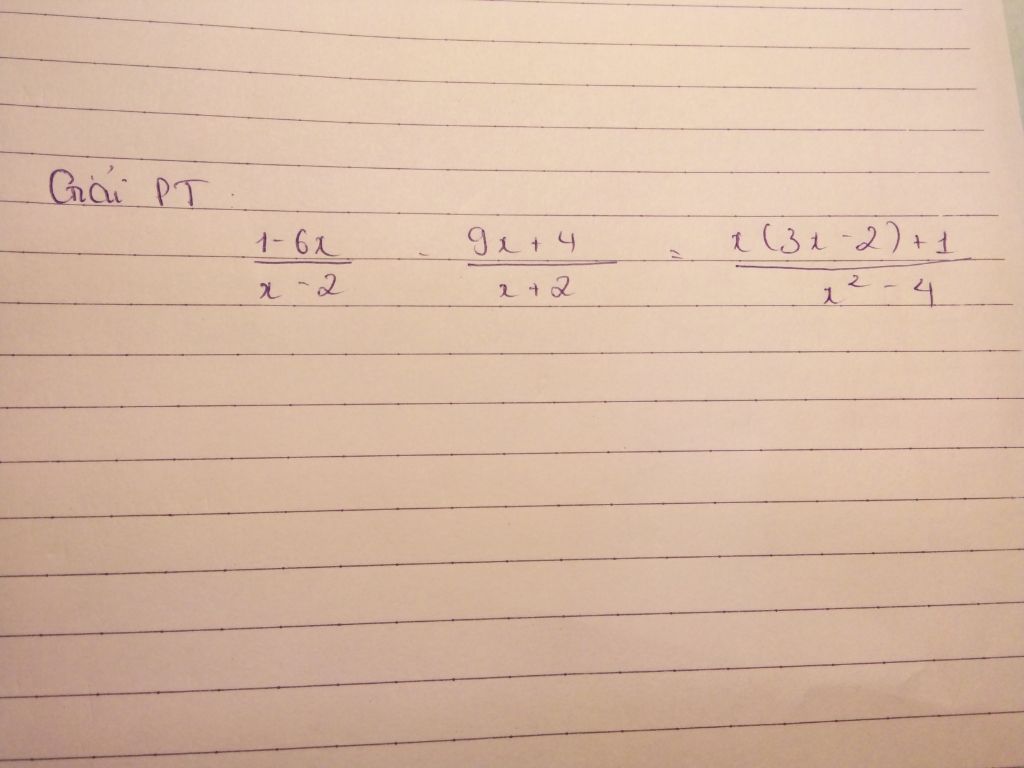 Giải PT.
1-6x / x-2 - 9x+4 / x+2 = x(3x-2)+1 / x² - 4